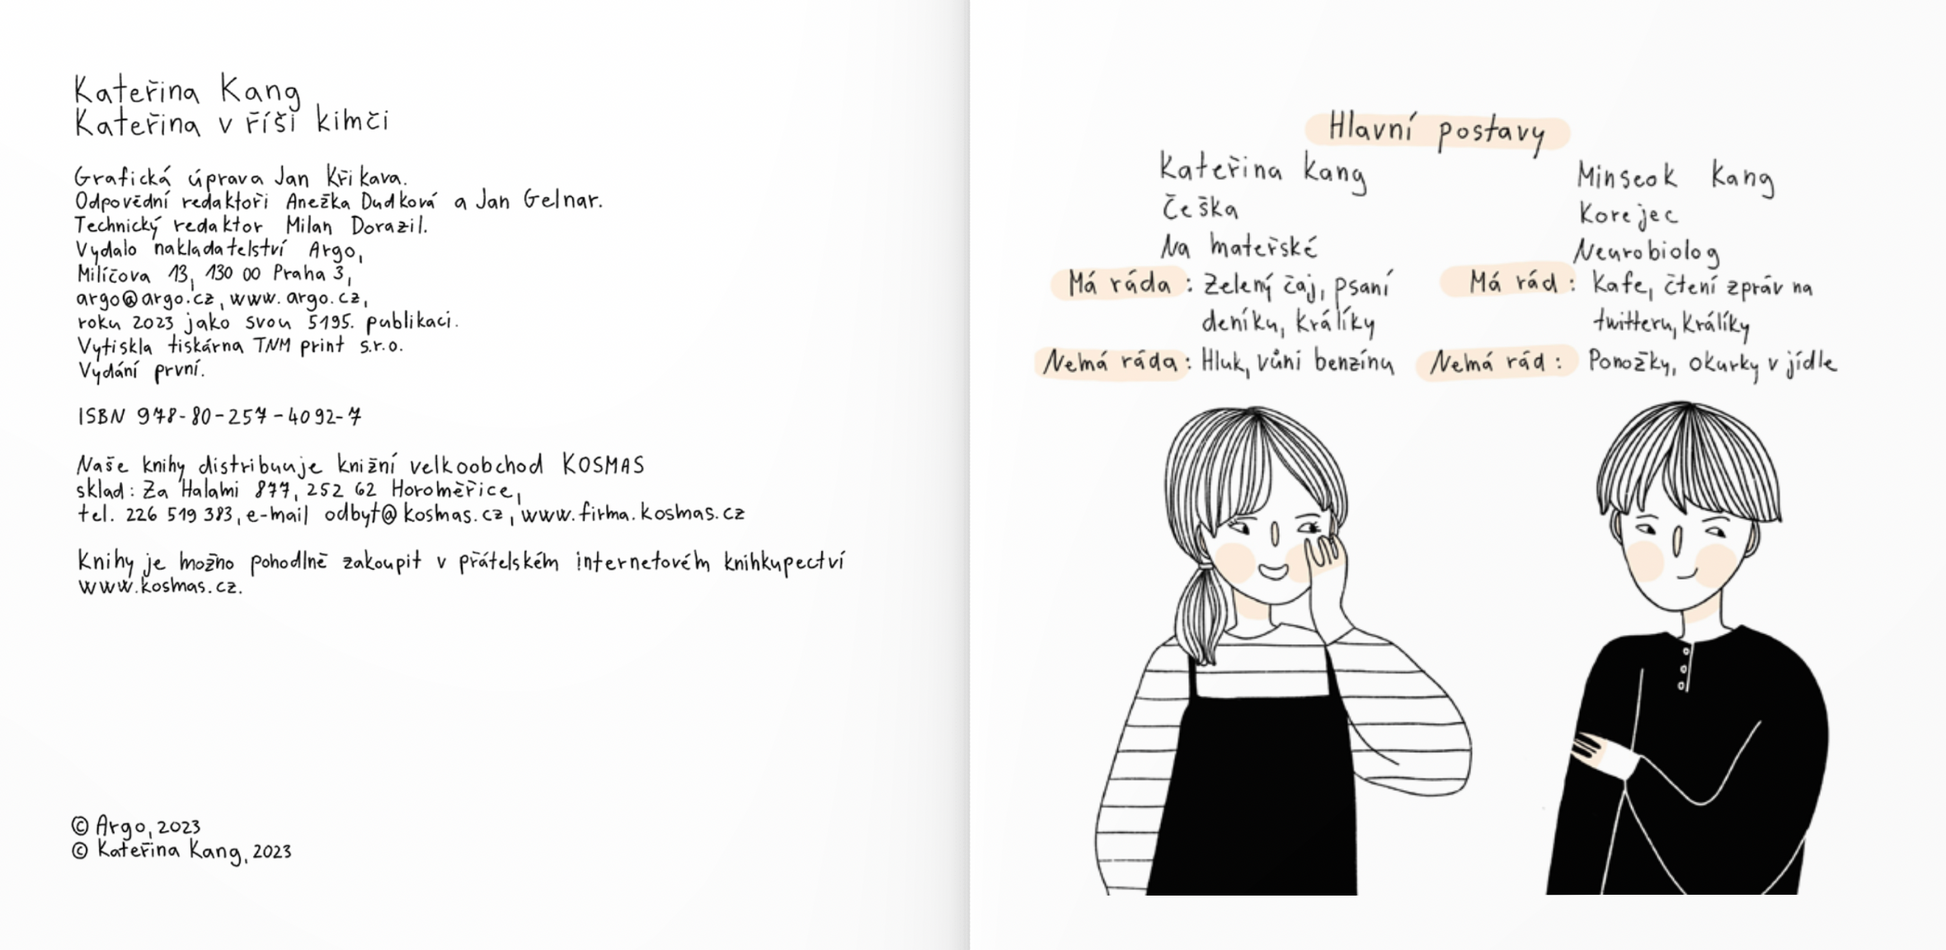 Kateřina Kang
Kateřina v říši kimči
Grafická úprava Jan Křikava.
Odpovědní redaktoři Anežka Dudková a Jan Gelnar.
Technický redaktor Milan Dorazil.
Vydalo nakladatelství Argo,
Milíčova 13, 130 00 Praha 3,
argo@argo.cz, www.argo.cz,
roku 2023 jako svou 5195. publikaci.
Vytiskla tiskárna TNM print s.r.o.
Vydání první.
ISBN 978-80-257-4092-7
Naše knihy distribuuje knižní velkoobchod KOSMAS
sklad: Za Halami 877, 252 62 Horoměřice,
tel. 226 519 383, e-mail odbyt@kosmas.cz, www.firma.kosmas.cz
Knihy je možno pohodlně zakoupit v přátelském internetovém knihkupectví
www.kosmas.cz.
© Argo, 2023
© Kateřina Kang, 2023
Hlavní postavy
Kateřina Kang
Češka
Na mateřské
Má ráda: Zelený čaj, psaní
deníku, králíky
Nemá ráda: Hluk, vůni benzínu
Minseok Kang
Korejec
Neurobiolog
Má rád: Kafe, čtení zpráv na
twitteru, králíky
Nemá rád: Ponožky, okurky v jídle